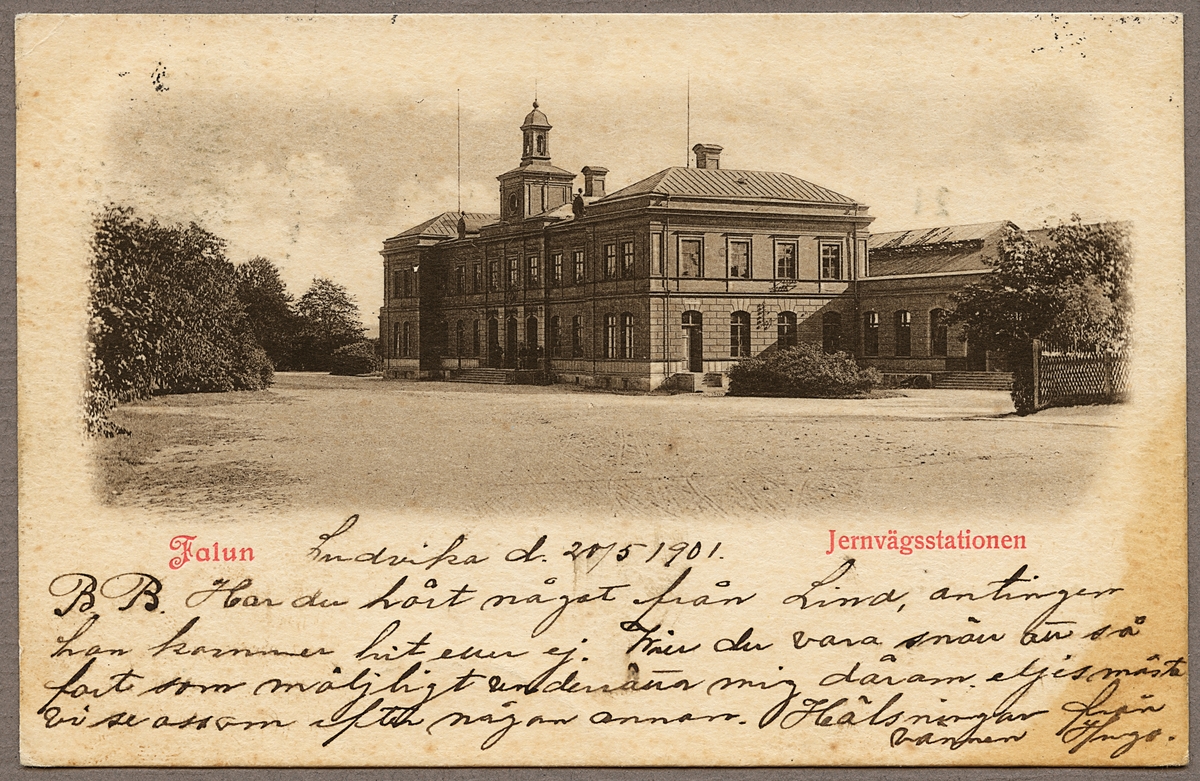 Falun
Jernvägsstationen
Ludvika d. 20/5 1901.
B. B. Har du hört något från Lind, antingen
han kommer hit eller ej. Vill du vara snäll att så
fort som möjligt underrätta mig därom, eljes måste
vi se oss om efter någon annan. Hälsningar från
vännen Hugo.